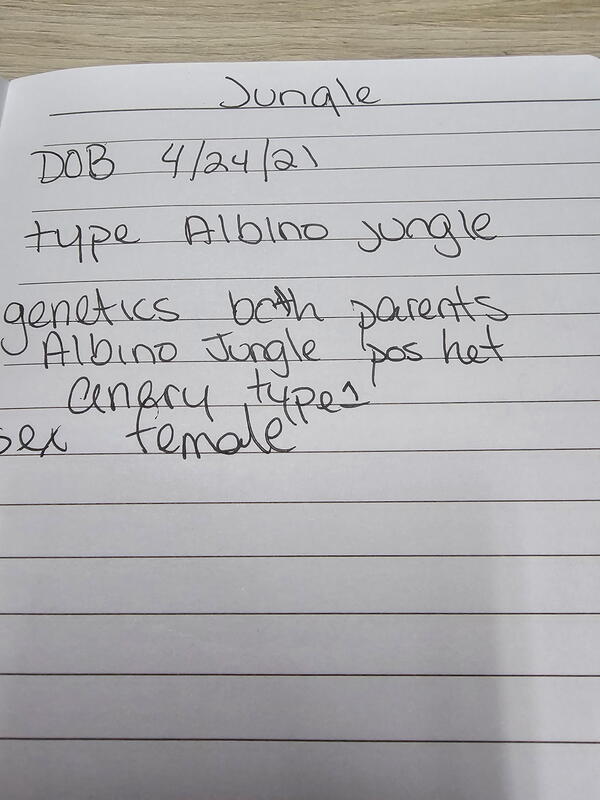 Jungle
DOB 4/24/21
type Albino jungle
genetics both parents
Albino Jungle pos het
anery type 1
sex female